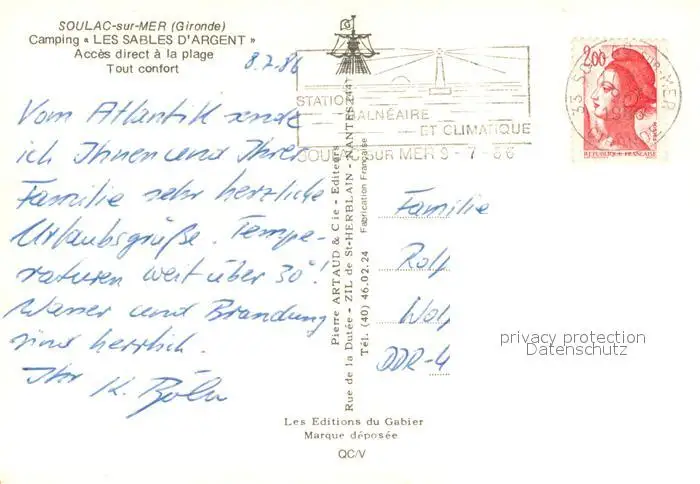 SOULAC-sur-MER (Gironde)
Camping « LES SABLES D'ARGENT »
Accès direct à la plage
Tout confort
8.7.86
Vom Atlantik sende
ich Ihnen und Ihrer
Familie sehr herzliche
Urlaubsgrüße. Tempe-
raturen weit über 30°!
Wasser und Brandung
sind herrlich.
Ihr K.
STATION
BALNÉAIRE
ET CLIMATIQUE
SOULAC SUR MER 9-7-86
2,00
REPUBLIQUE FRANÇAISE
Pierre ARTAUD & Cie - Editeurs
Rue de la Dutée - ZIL de St-HERBLAIN - NANTES 44
Tél. (40) 46.02.24 Fabrication Française
Familie
Rolf
Wolf
DDR-4
privacy protection
Datenschutz
Les Editions du Gabier
Marque déposée
QC/V